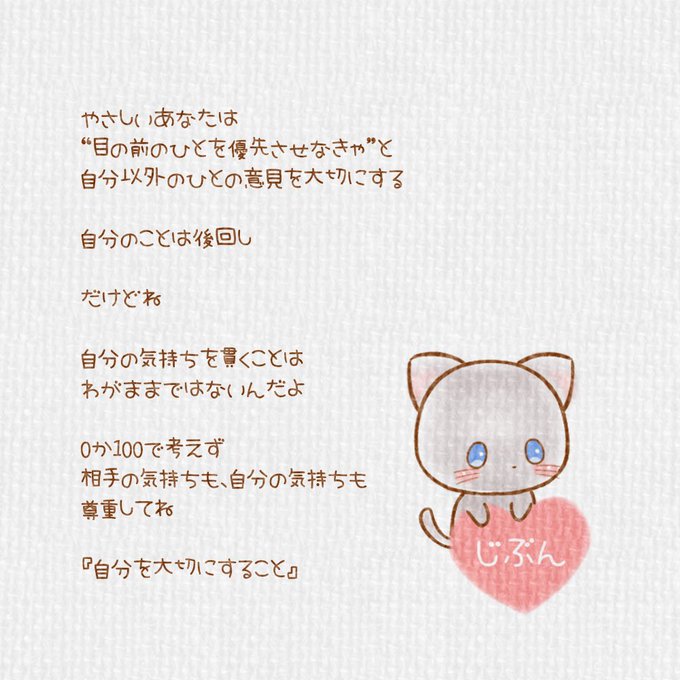 やさしいあなたは
“目の前のひとを優先させなきゃ”と
自分以外のひとの意見を大切にする
自分のことは後回し
だけどね
自分の気持ちを貫くことは
わがままではないんだよ
0か100で考えず
相手の気持ちも、自分の気持ちも
尊重してね
『自分を大切にすること』
じぶん